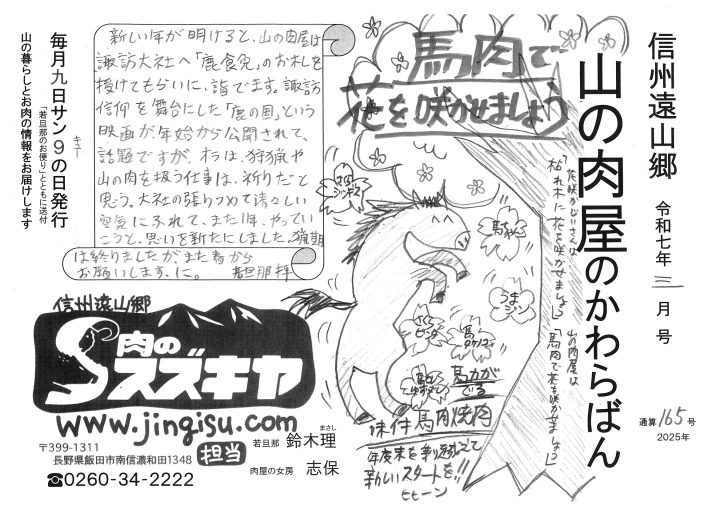 信州遠山郷
山の肉屋のかわらばん
令和七年 三 月 号
通算165号
2025年
馬肉で
花を咲かせましょう
花咲かじいさんは
「枯れ木に花を咲かせましょう」
山の肉屋は
「馬肉で花を咲かせましょう」
馬刺し
うま
ジン
さくら
馬力が
でる
味付馬肉焼肉
年度末を乗り越えて
新しいスタートを!!
ヒヒーン
新しい年が明けると、山の肉屋は
諏訪大社へ「鹿食免」のお札を
授けてもらいに、詣でます。諏訪
信仰を舞台にした「鹿の国」という
映画が年始から公開されて、
話題ですが、オラは、狩猟や
山の肉を扱う仕事は、祈りだと
思う。大社の張りつめて清々しい
空気にふれて、また1年、やってい
こうと、思いを新たにしました。猟期
は終りましたがまた春から
お願いします、に。 若旦那 拝
毎月九日サン9の日発行
キュー
「若旦那のお便り」とともに送付
山の暮らしとお肉の情報をお届けします
信州遠山郷
肉の
スズキヤ
www.jingisu.com
〒399-1311
長野県飯田市南信濃和田1348
☎0260-34-2222
担当
若旦那 鈴木理
まさし
肉屋の女房 志保